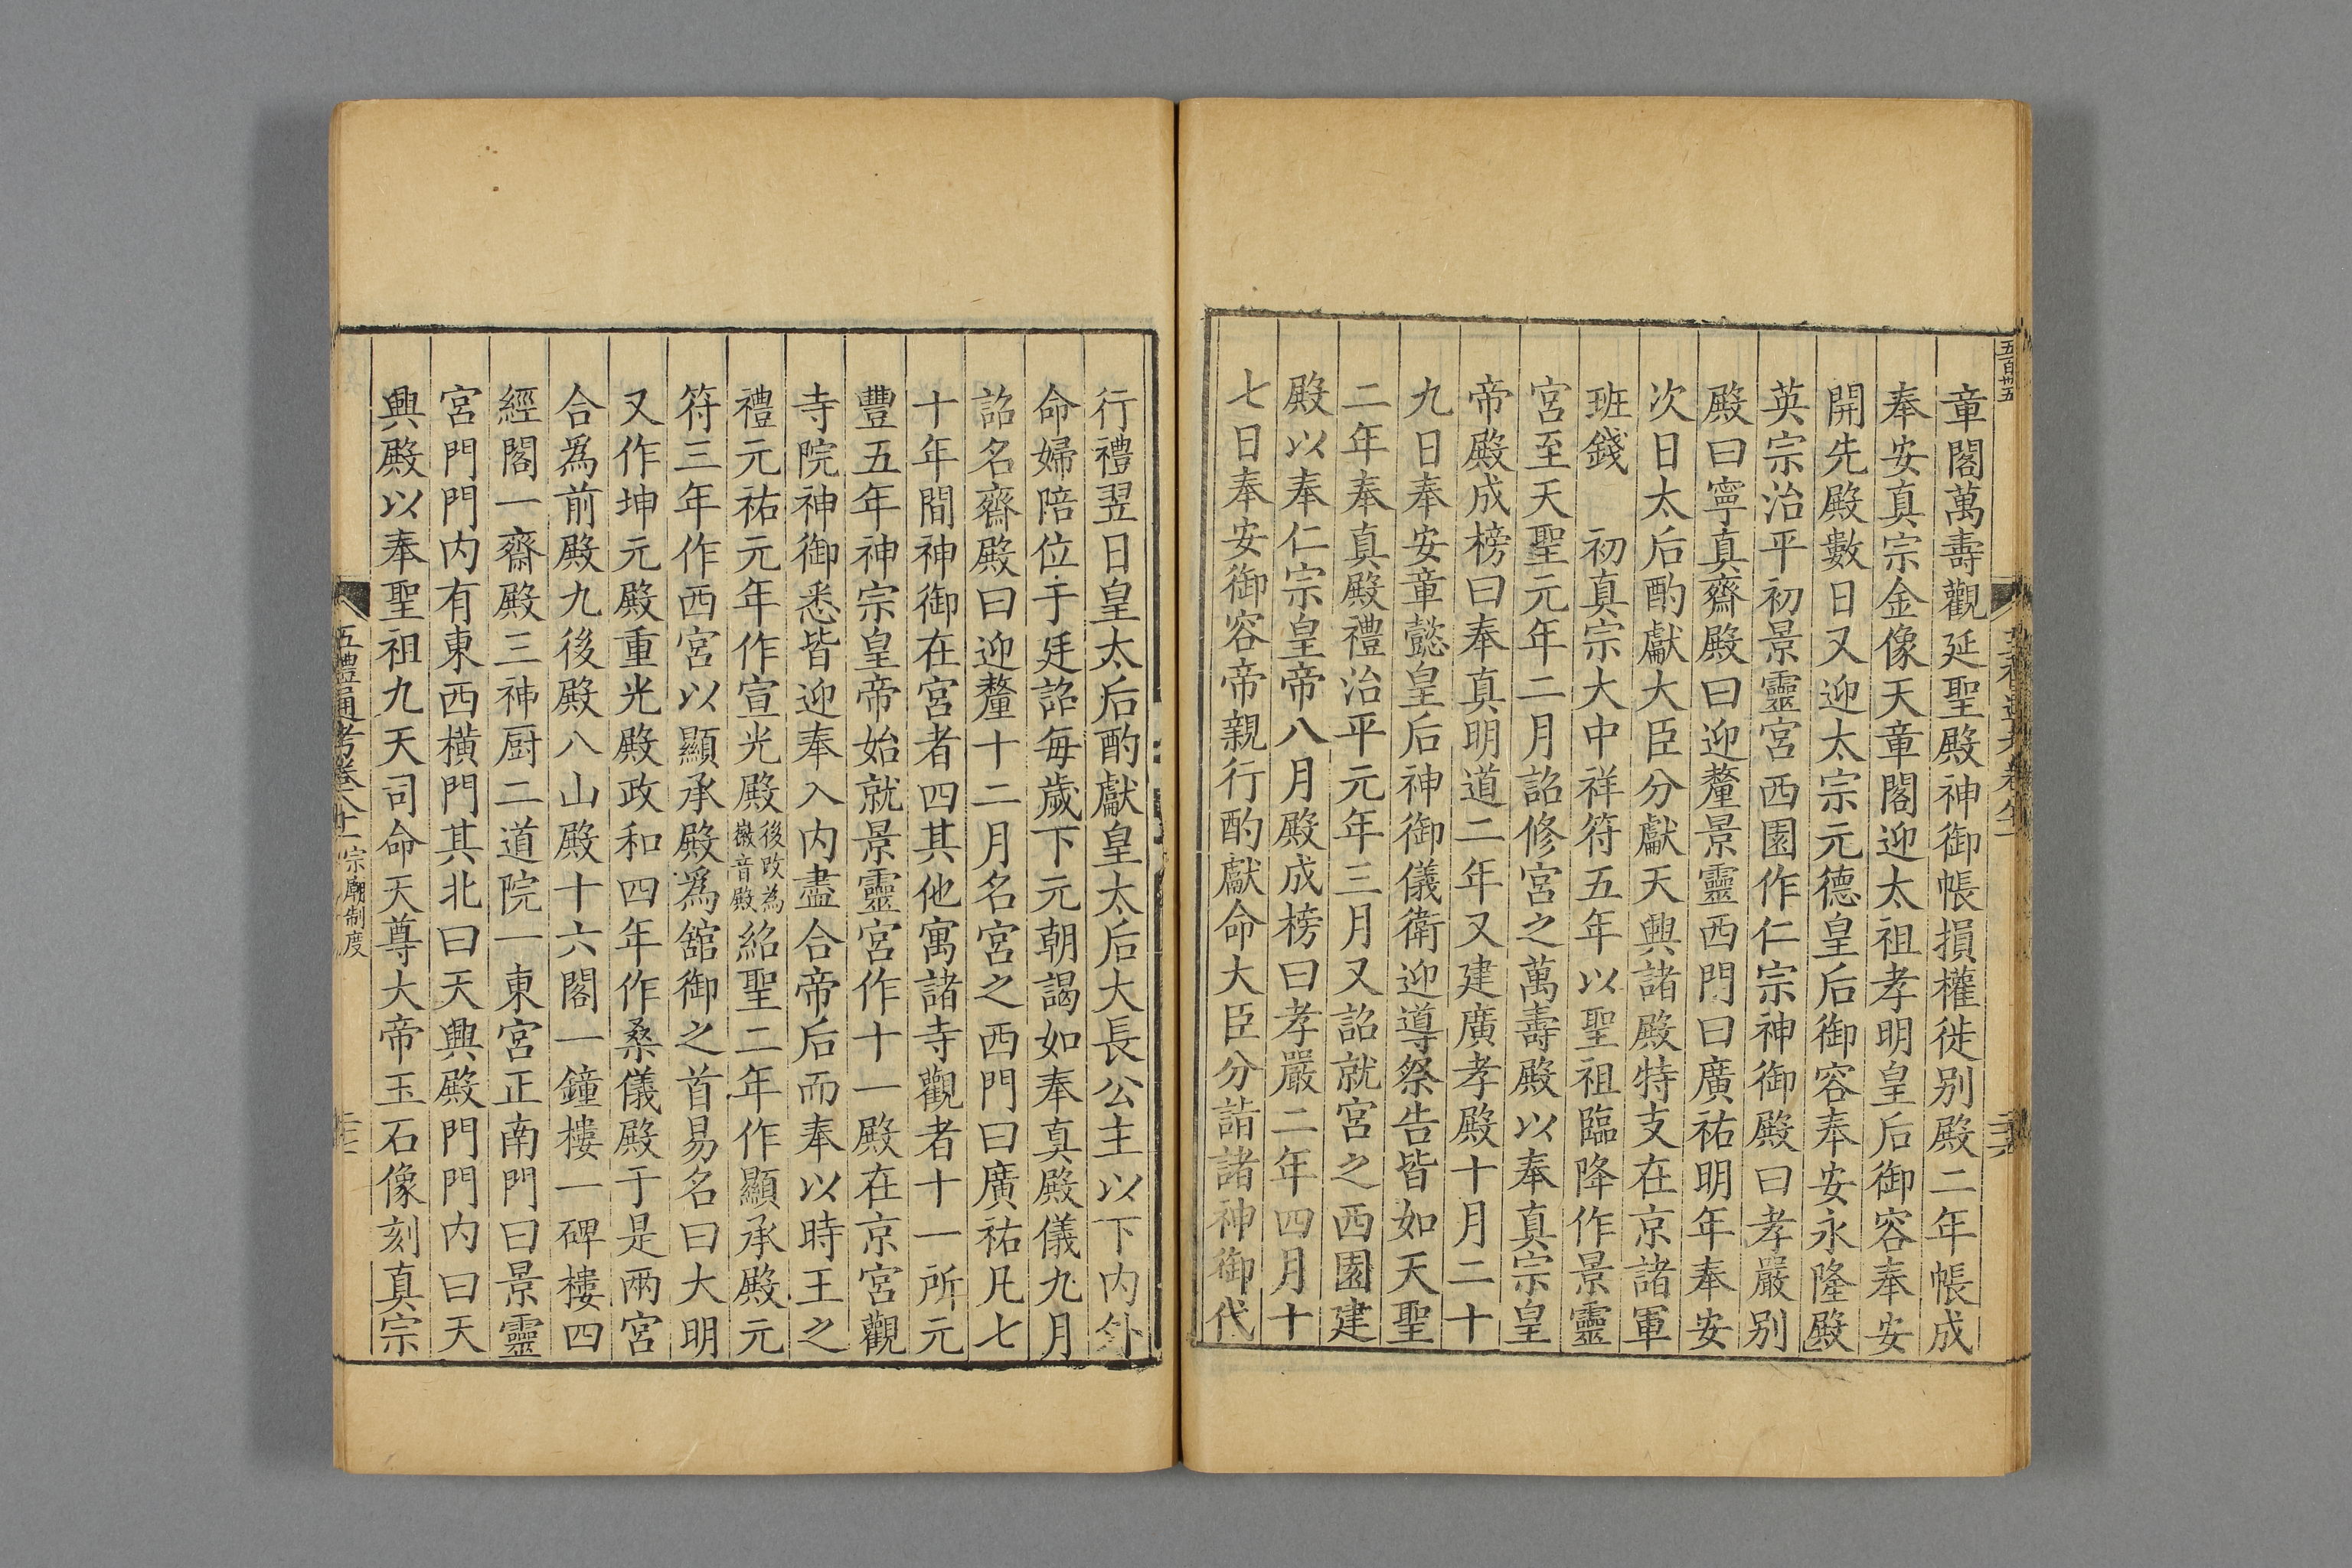 五百卅五
章閣萬壽觀延聖殿神御帳損權徙别殿二年帳成
奉安真宗金像天章閣迎太祖孝明皇后御容奉安
開先殿數日又迎太宗元德皇后御容奉安永隆殿
英宗治平初景靈宮西園作仁宗神御殿曰孝嚴别
殿曰寧真齋殿曰迎釐景靈西門曰廣祐明年奉安
次日太后酌獻大臣分獻天興諸殿特支在京諸軍
班錢　初真宗大中祥符五年以聖祖臨降作景靈
宮至天聖元年二月詔修宮之萬壽殿以奉真宗皇
帝殿成榜曰奉真明道二年又建廣孝殿十月二十
九日奉安章懿皇后神御儀衛迎導祭告皆如天聖
二年奉真殿禮治平元年三月又詔就宮之西園建
殿以奉仁宗皇帝八月殿成榜曰孝嚴二年四月十
七日奉安御容帝親行酌獻命大臣分詣諸神御代
行禮翌日皇太后酌獻皇太后大長公主以下内外
命婦陪位于廷詔每歲下元朝謁如奉真殿儀九月
詔名齋殿曰迎釐十二月名宮之西門曰廣祐凡七
十年間神御在宮者四其他寓諸寺觀者十一所元
豐五年神宗皇帝始就景靈宮作十一殿在京宮觀
寺院神御悉皆迎奉入内盡合帝后而奉以時王之
禮元祐元年作宣光殿後改為徽音殿紹聖二年作顯承殿元
符三年作西宮以顯承殿爲舘御之首易名曰大明
又作坤元殿重光殿政和四年作桑儀殿于是兩宮
合爲前殿九後殿八山殿十六閣一鐘樓一碑樓四
經閣一齋殿三神厨二道院一東宮正南門曰景靈
宮門門内有東西橫門其北曰天興殿門門内曰天
興殿以奉聖祖九天司命天尊大帝玉石像刻真宗
五禮通考卷八十二 宗廟制度